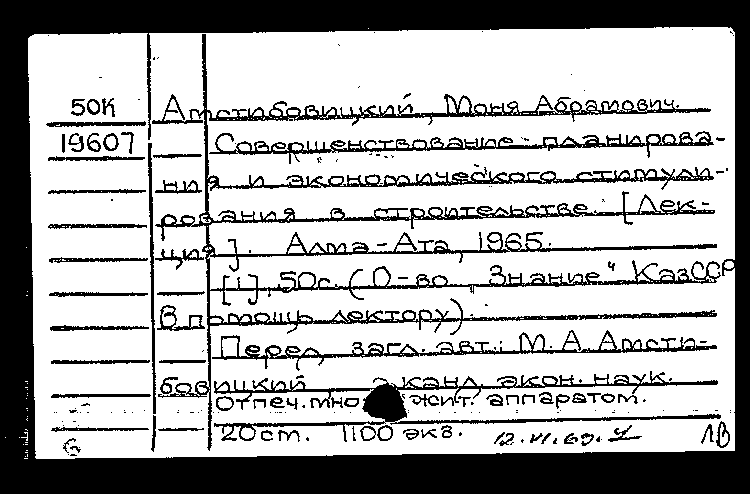 50К Амстибовицкий, Моня Абрамович.
19607 Совершенствование планирова-
ния и экономического стимули-
рования в строительстве. [Лек-
ция]. Алма-Ата, 1965.
[1], 50с. (О-во „Знание" КазССР
В помощь лектору).
Перед загл. авт.: М. А. Амсти-
бовицкий, канд. экон. наук.
Отпеч. мно жит. аппаратом.
20 ст. 1100 экз.
ЛВ